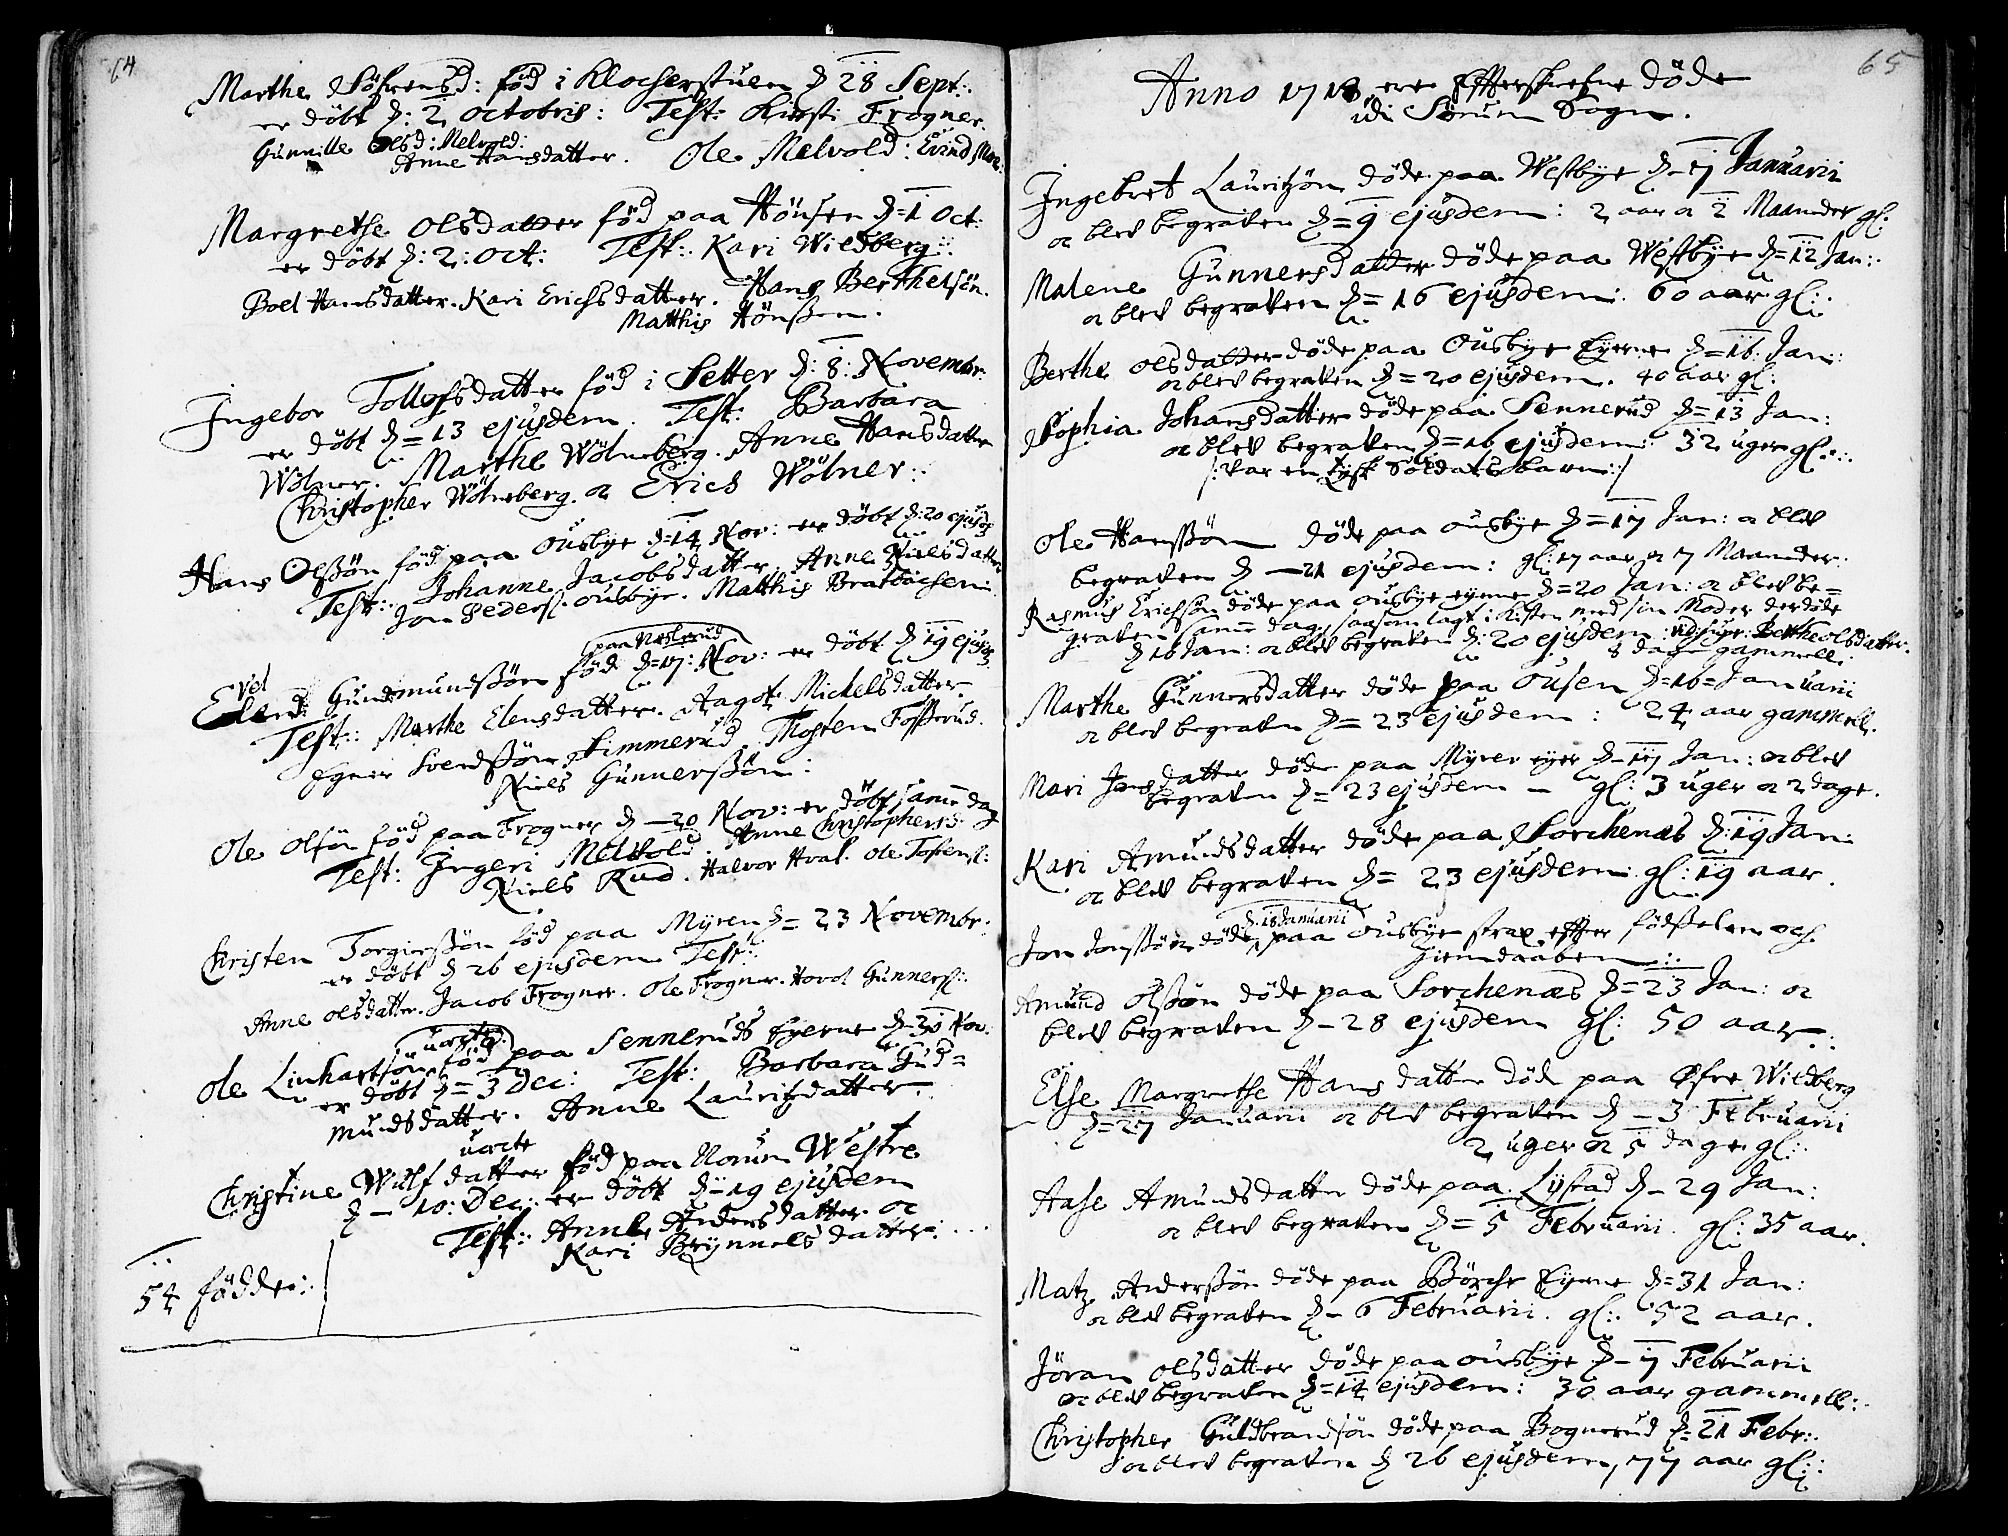 64
Marthe Söfrensd: fød i Klocherstuen d 28 Sept:
er døbt d: 2 Octobris: Test: Kirsti Frogner.
Gunnille Olsd: Melvold:
Anne Hansdatter. Ole Melvold: Evind Moe.
Margrethe Olsdatter fød paa Hönsen d=1 Oct:
er døbt d: 2: Oct: Test: Kari Wildberg:
Boel Hansdatter. Kari Erichsdatter. Hans Berthelsön.
Matthis Hönssen.
Ingebor Tollofsdatter fød i Setter d: 8: Novembr:
er døbt d=13 ejusdem. Test: Barbara
Wölner. Marthe Wölneberg. Anne Hansdatter
Christopher Wölneberg. oc Erich Wölner:
Hans Olssön fød paa Ousbye d=14 Nov: er døbt d: 20 ejusd
Test: Johanne Jacobsdatter. Anne Nielsdatter
Jon Peders. Ousbye. Matthis Bratbachen:
paa Neslerud
Evel
Elend Gundmundssön fød d=17: Nov: er døbt d 19 ejusd
Test: Marthe Elensdatter. Aagot Michelsdatter.
Svendssön Simmerud. Thosten Fosserud.
Niels Gunnerssön:
Ole Olsön fød paa Frogner d=20 Nov: er døbt samme dag
Test: Ingeri Melvold. Anne Christophersd:
Niels Rud. Halvor Hval. Ole Tostens:
Christen Torgierssön fød paa Myren d=23 Novembr:
er døbt d 26 ejusdem Test:
Anne Olsdatter. Jacob Frogner. Ole Frogner. Hovel Gunners:
uægte
Ole Linhartsön fød paa Senneruds Eyerne d=30 Nov:
er døbt d=3 Dec: Test: Barbara Gud=
mundsdatter. Anne Lauritzdatter.
uæcte
Christine Wulfsdatter fød paa Norum Westre
d=10: Dec: er døbt d=19 ejusdem
Test: Anne Andersdatter. oc
Kari Brynnelsdatter: ...
54 fødde:
65
Anno 1718 ere Effterskrefne døde
udi Sörum Sogn.
Ingebret Lauritzön døde paa Westbye d=7 Januarii
oc blev begraven d=9 ejusdem: 2 aar oc 2 Maaneder gl.
Malene Gunnersdatter døde paa Westbye d=12 Jan:
oc blev begraven d=16 ejusdem: 60 aar gl:
Berthe Olsdatter døde paa Ousbye Eyerne d=16. Jan:
oc blev begraven d=20 ejusdem. 40 aar gl:
Sophia Johansdatter døde paa Sennerud d=13 Jan:
oc blev begraven d=16 ejusdem: 32 uger gl:
/: var en Tysk Soldats barn :/
Ole Hanssön døde paa Ousbye d=17 Jan: oc blev
begraven d=21 ejusdem: gl: 7 aar oc 7 Maaneder:
Rasmus Erichsön døde paa Ousbye eyerne d=20 Jan: oc blev be=
graven samme dag, saasom lagt i Kisten med sin Moder der døde
d 16 Jan: oc blev begraven d: 20 ejusdem: vid: supr: Berthe Olsdatter.
8 dage gammell:
Marthe Gunnersdatter døde paa Ousen d=16= Januarii
oc blev begraven d=23 ejusdem: 24 aar gammell.
Mari Jensdatter døde paa Myrer eyer d=17 Jan: oc blev
begraven d=23 ejusdem - gl: 3 uger oc 2 dage.
Kari Amundsdatter døde paa Sorchenæs d: 19 Jan:
oc blev begraven d=23 ejusdem gl: 19 aar.
d: 18 Januarii
Jon Jonssön døde paa Ousbye strax effter födsselen och
hjemdaaben:
Amund Olssön døde paa Sorchenæs d=23 Jan: oc
blev begraven d=28 ejusdem gl: 50 aar:
Else Margrethe Hansdatter døde paa Øfre Wildberg
d=27 Januarii oc blev begraven d=3 Februarii
2 uger oc 5 dage gl:
Aase Amundsdatter døde paa Lystad d=29 Jan:
oc blev begraven d=5 Februarii. gl: 35 aar.
Matz Anderssön døde paa Börche Eyerne d=31 Jan:
oc blev begraven d=6 Februarii. gl: 52 aar.
Jöran Olsdatter døde paa Ousbye d=7 Februarii
oc blev begraven d=14 ejusdem: 30 aar gammell:
Christopher Guldbrandsön døde paa Bognerud d=21 Febr:
oc blev begraven d 26 ejusdem, 77 aar gl: